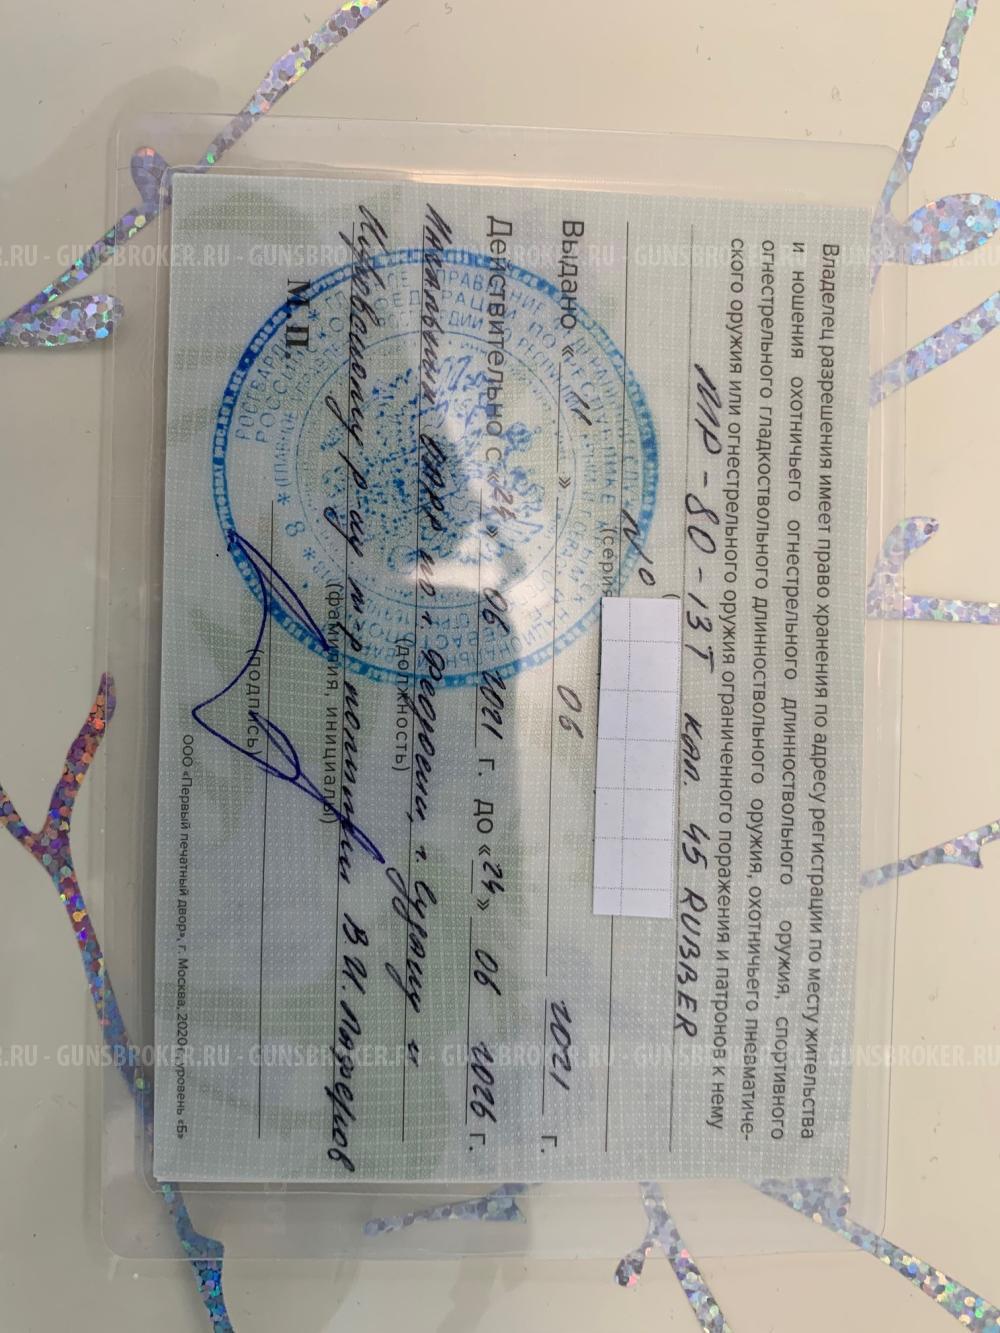 Владелец разрешения имеет право хранения по адресу регистрации по месту жительства
и ношения охотничьего огнестрельного длинноствольного оружия, спортивного
огнестрельного гладкоствольного длинноствольного оружия, охотничьего пневматиче-
ского оружия или огнестрельного оружия ограниченного поражения и патронов к нему
МР-80-13Т кал. 45 RUBBER
№
(серия
Выдано « 11 » 06 2021 г.
Действительно с «24» 06 2021 г. до «24» 06 2026 г.
по г. Феодосии, г. Судаку и
(должность)
р-ну В.И.
(фамилия, инициалы)
М.П.
(подпись)
ООО «Первый печатный двор», г. Москва, 2020 г., уровень «Б»
GUNSBROKER.RU - GUNSBROKER.RU - GUNSBROKER.RU - GUNSBROKER.RU
GUNSBROKER.RU - GUNSBROKER.RU - GUNSBROKER.RU - GUNSBROKER.RU